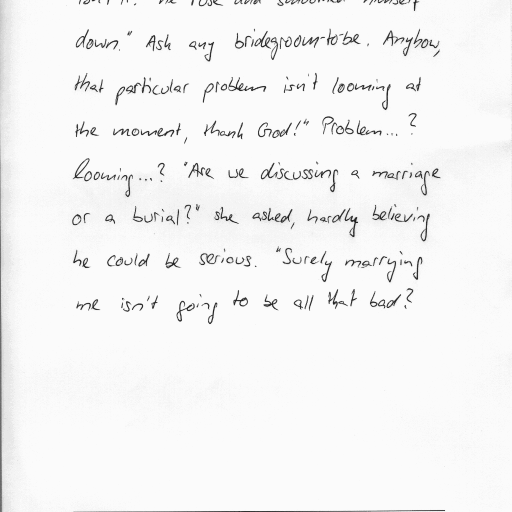 isn't it." He rose and swooned himself
down." Ask any bridegroom-to-be. Anyhow,
that particular problem isn't looming at
the moment, thank God!" Problem...?
looming...? "Are we discussing a marriage
or a burial?" she asked, hardly believing
he could be serious. "Surely marrying
me isn't going to be all that bad?